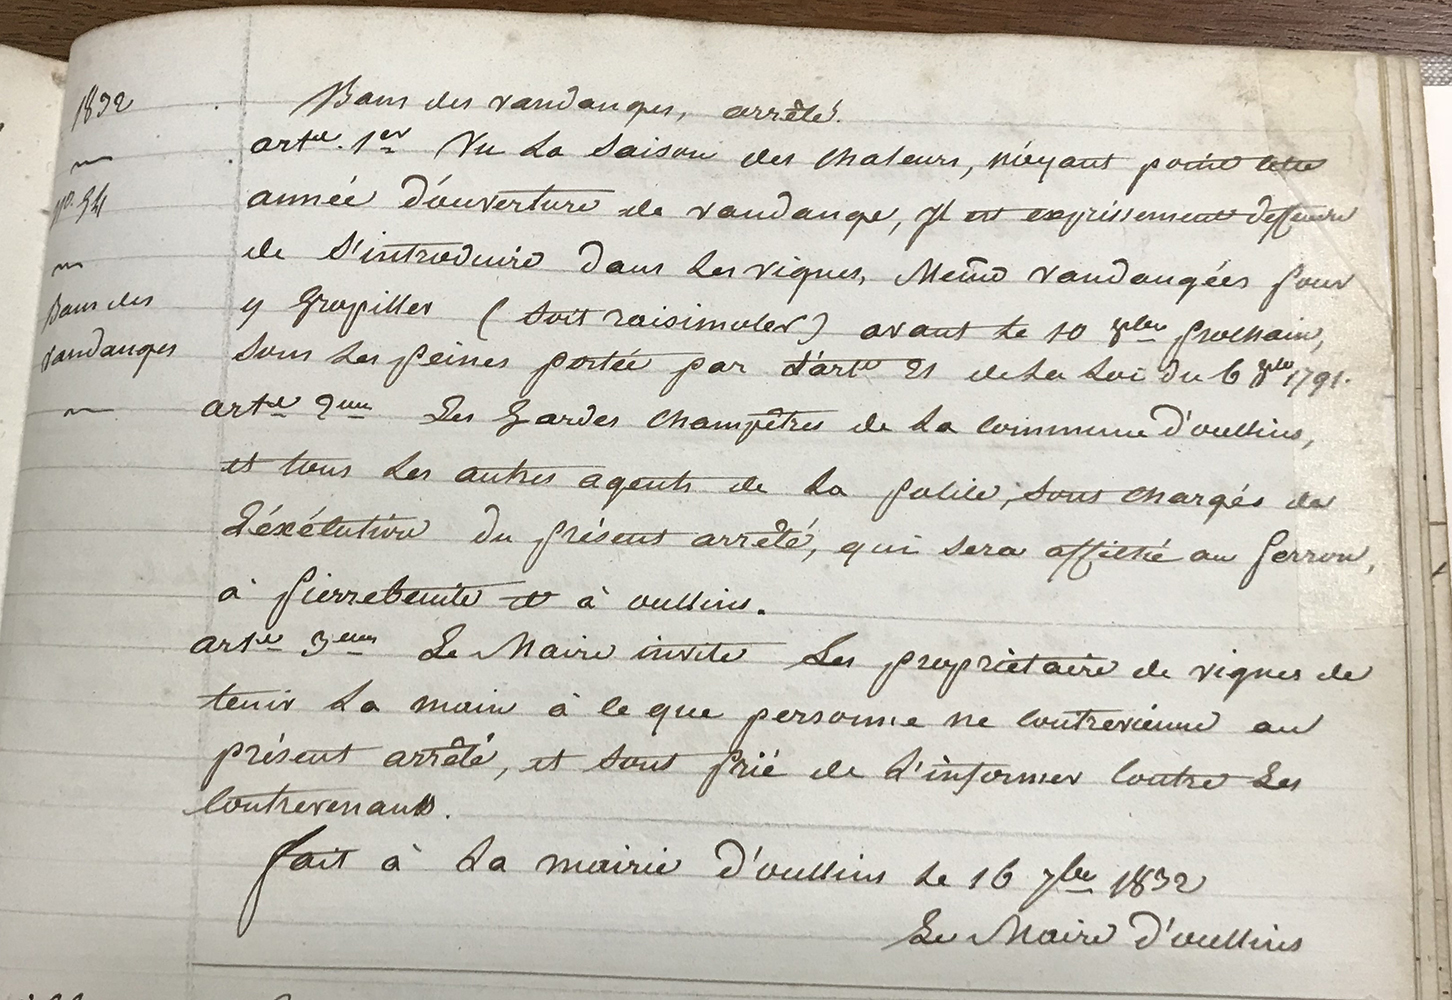 1832
n°. 54
Bans des
vandanges
Bans des vandanges, arrêté.
arte. 1er Vu La Saison des chaleurs, n'éyant point cette
année d'ouverture de vandange, Jl est expressement deffendu
de S'introduire dans Les vignes, Meme vandangées pour
y Grapiller (soit raisimoler) avant le 10 8bre prochain,
Sous Les peines portée par L'arte 21 de La Loi du 6 8bre 1791.
arte 2eme Les Gardes champêtres de La commune d'oullins,
et tous Les autres agents de La police, sont chargés de
L'éxécution du présent arrêté, qui sera affiché au perron,
à pierrebenite et à oullins.
arte 3eme Le Maire invite Les proprietaire de vignes de
tenir La main à ce que personne ne contrevienne au
présent arrêté, et sont prié de L'informer contre Les
contrevenants.
fait à La mairie d'oullins le 16 7bre 1832
Le Maire d'oullins